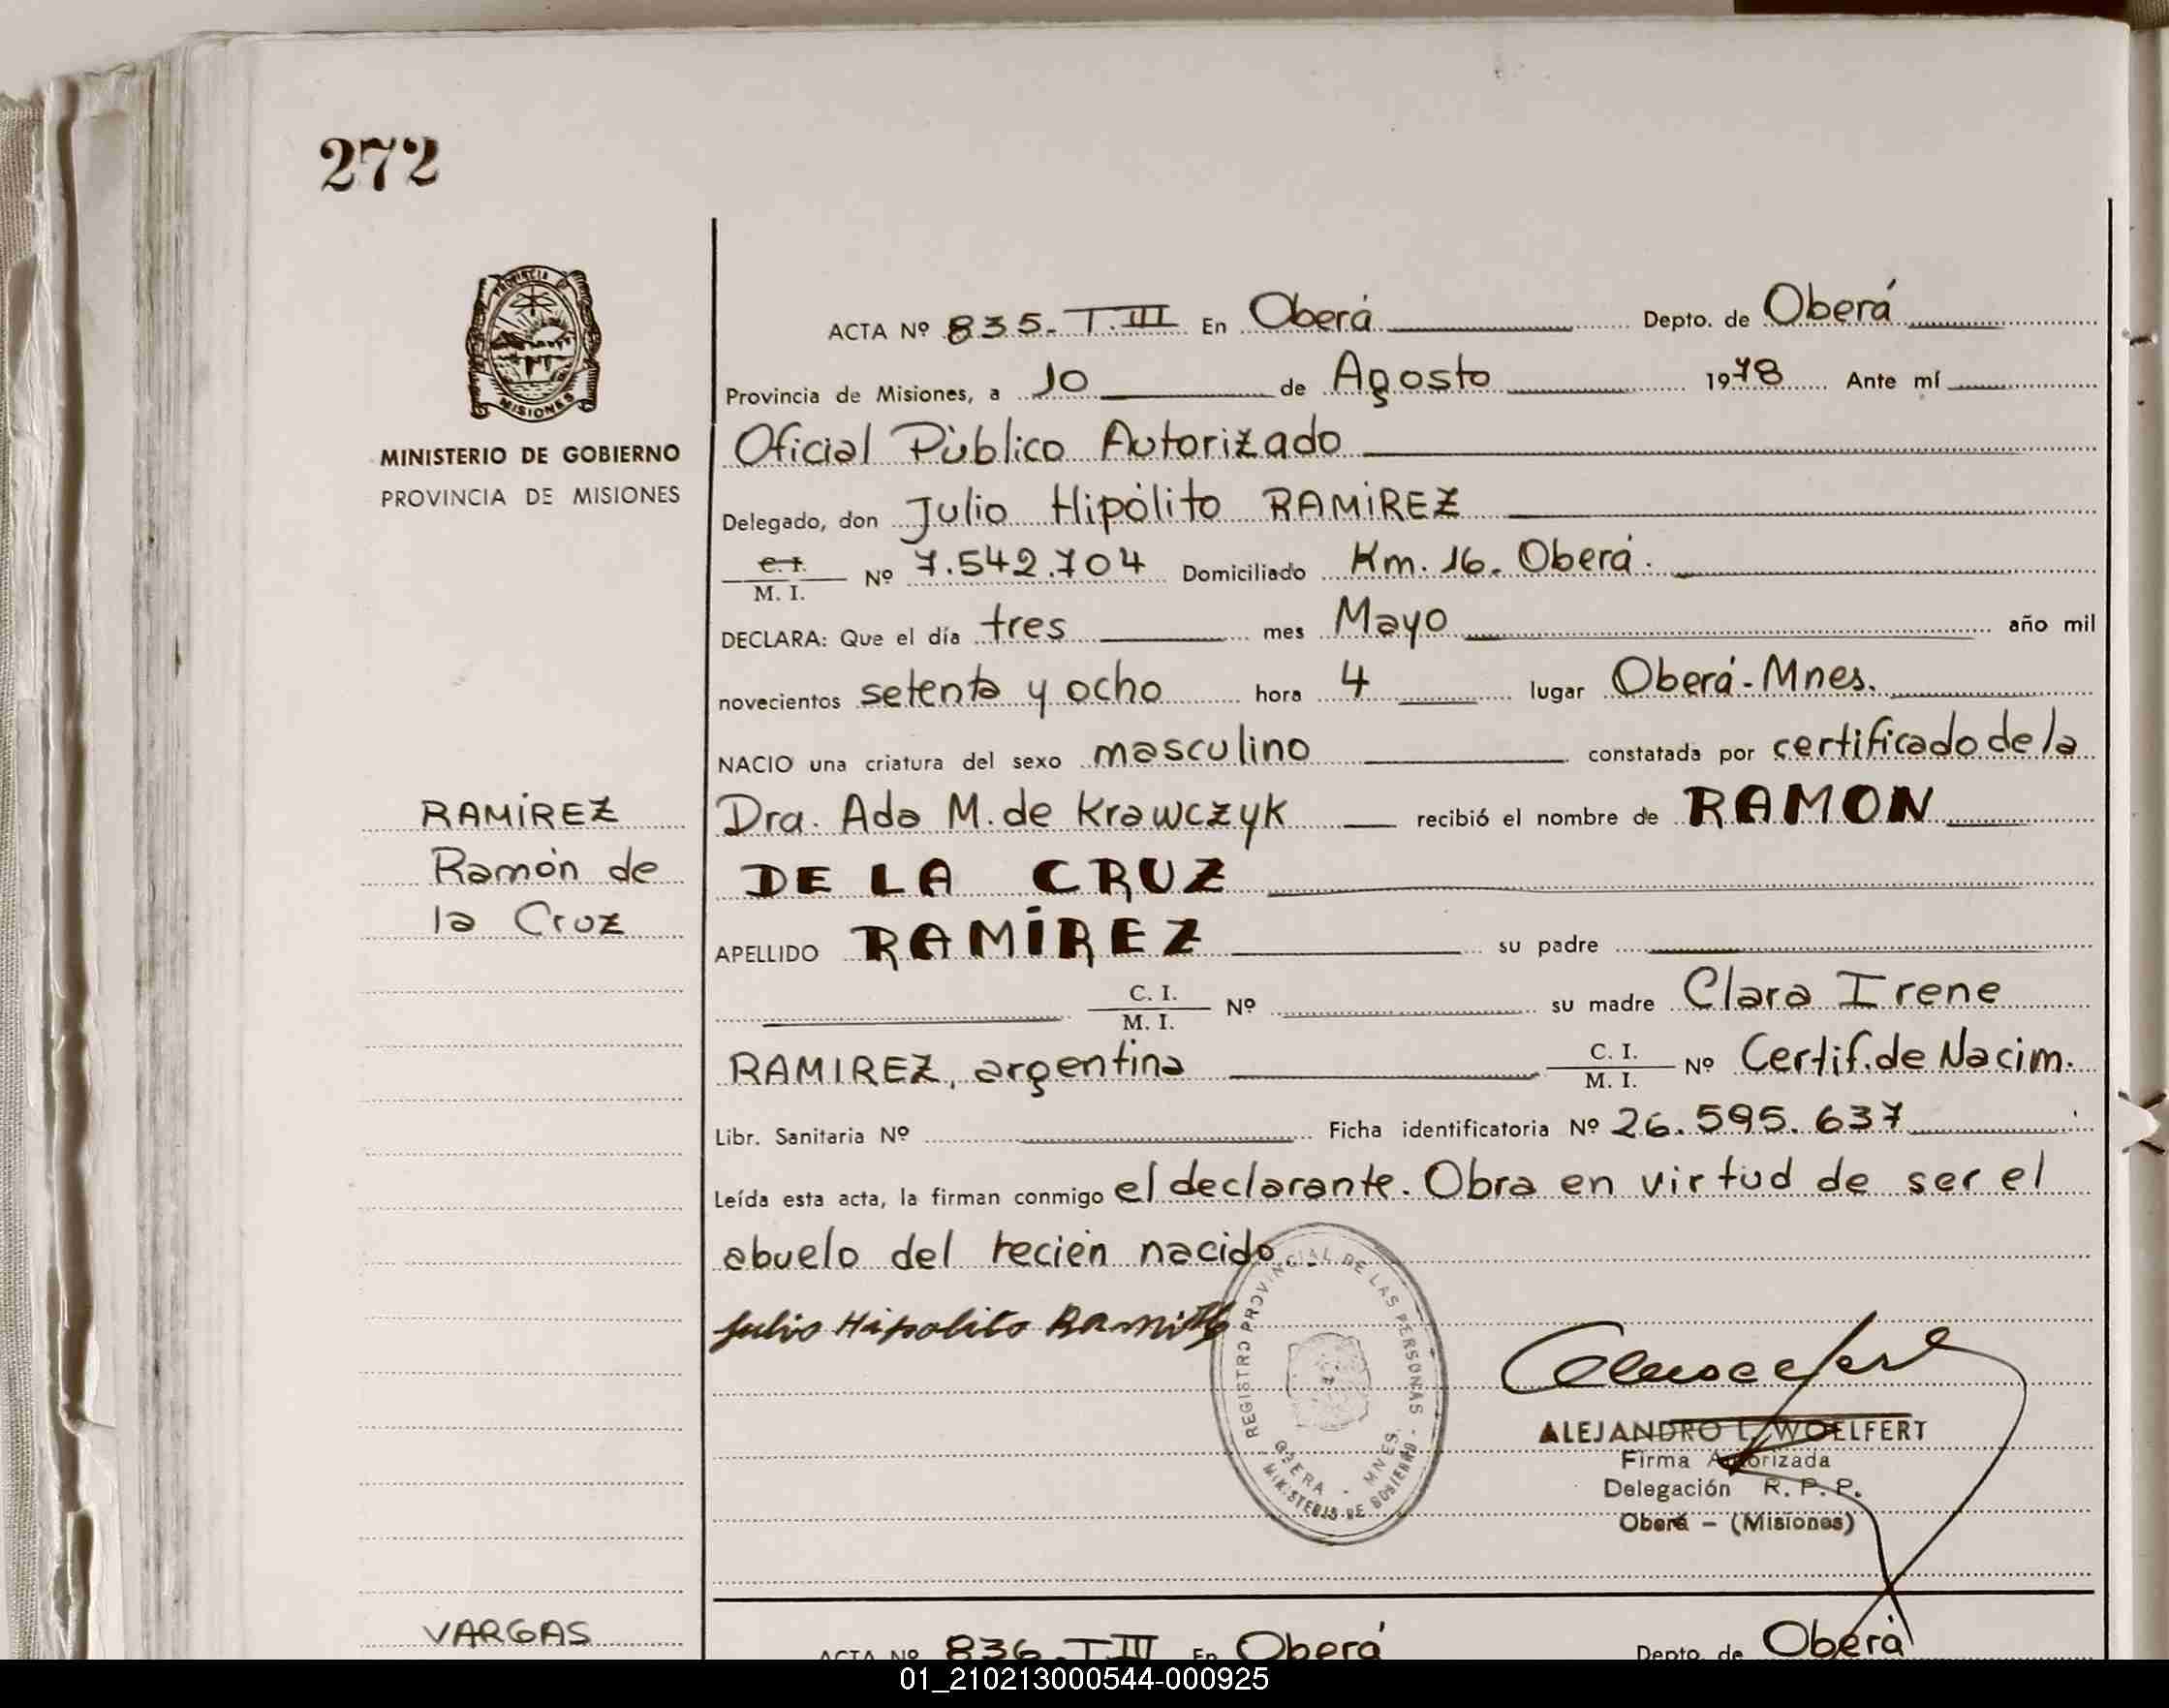 272
PROVINCIA
MISIONES
MINISTERIO DE GOBIERNO
PROVINCIA DE MISIONES
ACTA Nº 835-T.III En Oberá Depto. de Oberá
Provincia de Misiones, a 10 de Agosto 1978 Ante mí
Oficial Público Autorizado
Delegado, don Julio Hipólito RAMÍREZ
C. I.
M. I. Nº 7.542.704 Domiciliado Km. 16. Oberá.
DECLARA: Que el día tres mes Mayo año mil
novecientos setenta y ocho hora 4 lugar Oberá-Mnes.
NACIO una criatura del sexo masculino constatada por certificado de la
Dra. Ada M. de Krawczyk recibió el nombre de RAMON
DE LA CRUZ
APELLIDO RAMÍREZ su padre
C. I.
M. I. Nº su madre Clara Irene
RAMIREZ, argentina C. I.
M. I. Nº Certif. de Nacim.
Libr. Sanitaria Nº Ficha identificatoria Nº 26.595.637
Leída esta acta, la firman conmigo el declarante. Obra en virtud de ser el
abuelo del recién nacido.
RAMÍREZ
Ramón de
la Cruz
Julio Hipolito Ramirez
REGISTRO PROVINCIAL DE LAS PERSONAS
OBERA - MNES.
MINISTERIO DE GOBIERNO
ALEJANDRO L. WOELFERT
Firma Autorizada
Delegación R. P. P.
Oberá - (Misiones)
VARGAS
ACTA Nº 836-T III En Oberá Depto. de Oberá
01_210213000544-000925